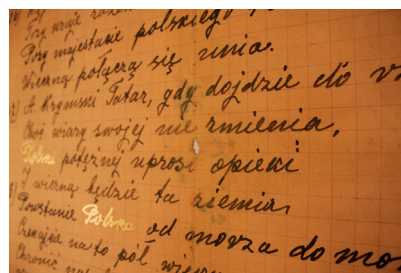 Przy majestacie polskiego
Wieczną połączą się unia.
A Krymski Tatar, gdy dojdzie do
Choć wiary swojej nie zmienia,
Polski potężnej uprosi opieki
I wierną będzie ta ziemia,
Powstanie Polska od morza do mo
Czekajcie na to pół wieku
Chronić nas